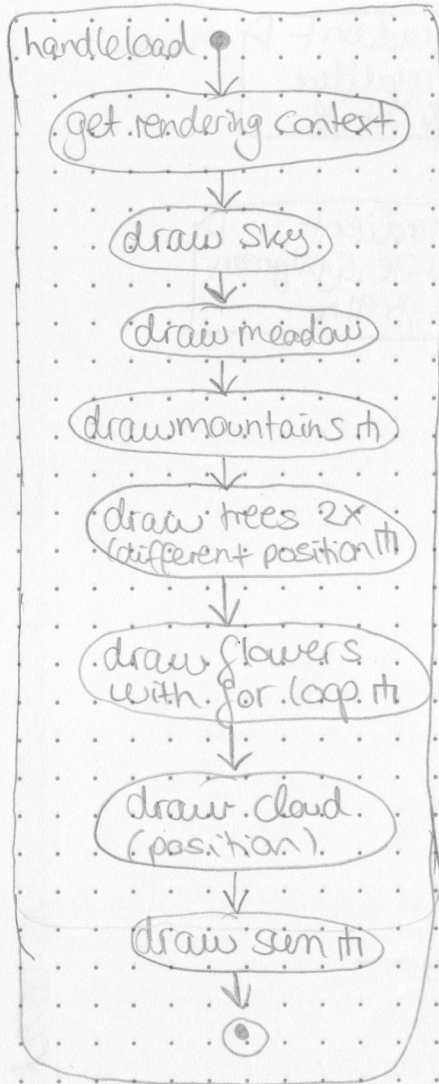 handleload
get rendering context
draw sky
draw meadow
draw mountains
draw trees 2x
(different position
draw flowers
with for loop
draw cloud
(position)
draw sun